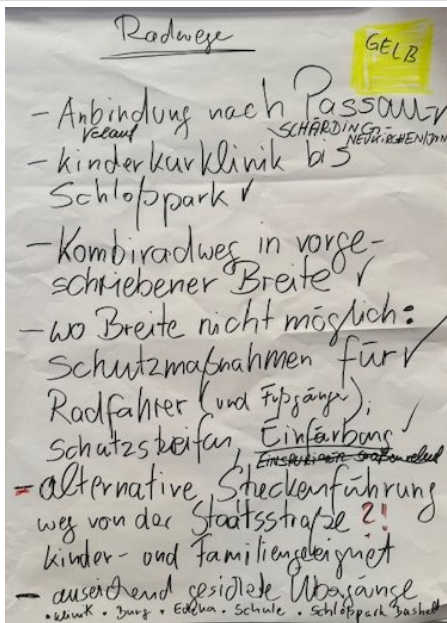 Radwege
GELB
- Anbindung nach Passau ✓
SCHÄRDING - NEUKIRCHEN/INN
- Kinderkurklinik bis
Schloßpark ✓
- Kombiradweg in vorge-
schriebener Breite ✓
- wo Breite nicht möglich:
Schutzmaßnahmen für ✓
Radfahrer (und Fußgänger),
Schutzstreifen, Einfärbung ✓
- alternative Streckenführung
weg von der Staatsstraße ?!
kinder- und familiengeeignet
- ausreichend gesicherte Übergänge
• Klinik • Burg • Edeka • Schule • Schloßpark